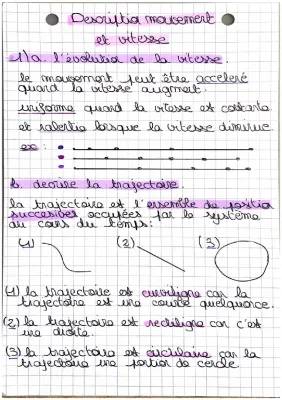 Description mouvement
et vitesse
1) a. l'évolution de la vitesse.
le mouvement peut être acceleré
quand la vitesse augment.
uniforme quand la vitesse est constante
et ralentie lorsque la vitesse diminue.
ex :
b. decrire la trajectoire.
la trajectoire est l'ensemble de position
succesives occupées par le système
au cours du temps:
(1) (2) (3)
(1) la trajectoire est curviligne car la
trajectoire est une courbe quelquonce.
(2) la trajectoire est rectiligne car c'est
une droite.
(3) la trajectoire est circulaire car la
trajectoire une portion de cercle.